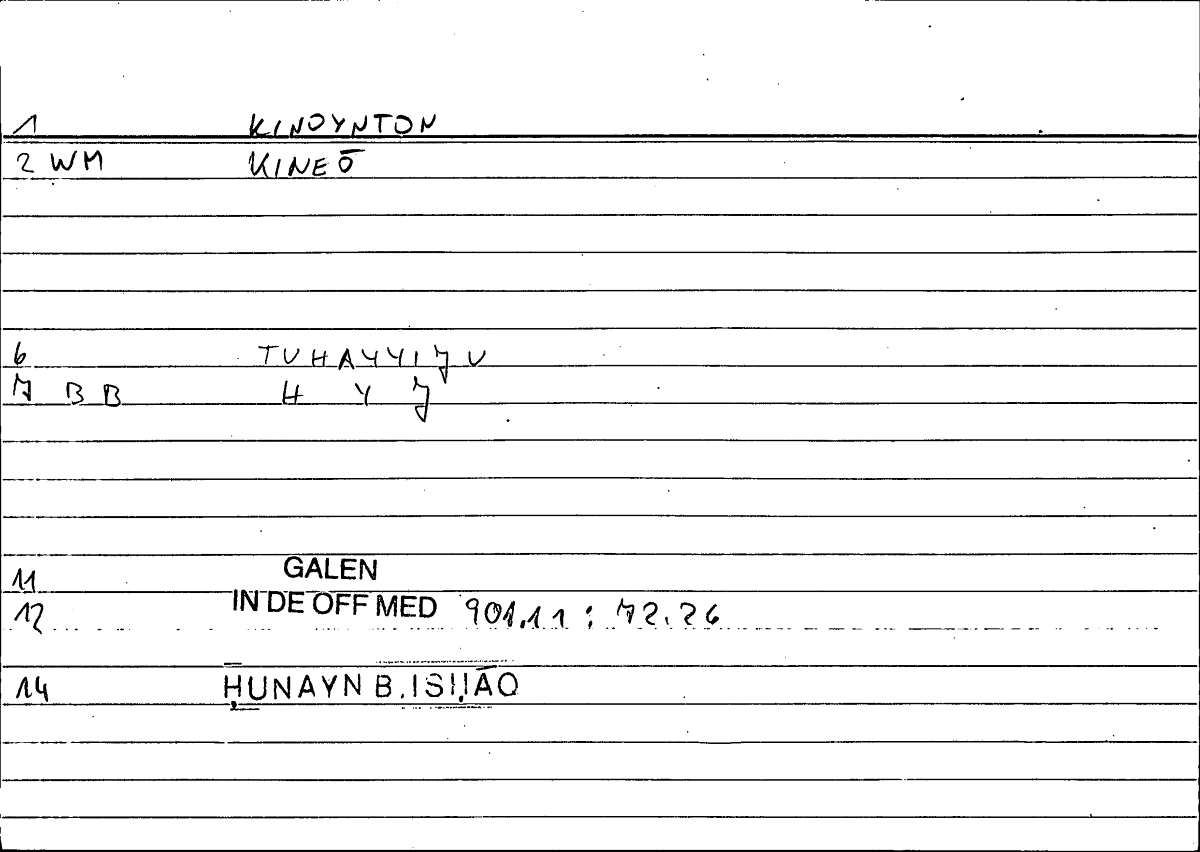 1 KINOYNTON
2 WM KINEŌ
6 TUHAYYIJU
7 BB H Y J
11 GALEN
12 IN DE OFF MED 901.11 : 72.26
14 ḤUNAYN B. ISḤĀQ